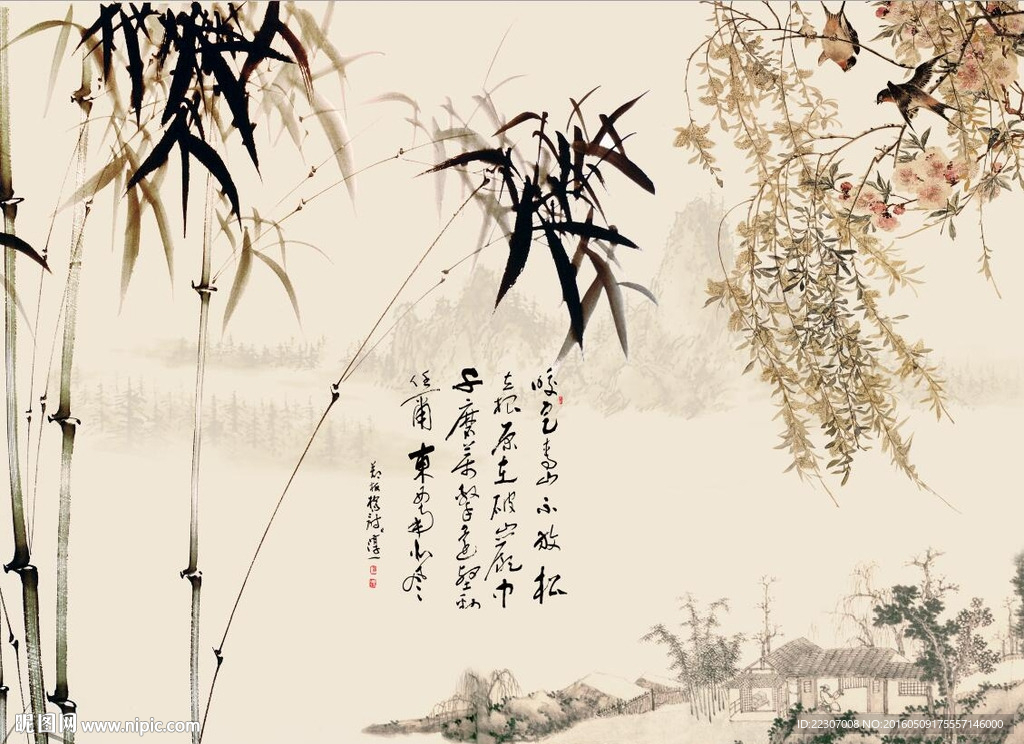 咬定青山不放松
立根原在破巖中
千磨萬擊還堅勁
任爾東西南北風
鄭板橋詩 淳一
昵图网 www.nipic.com
ID:22307008 NO:20160509175557146000